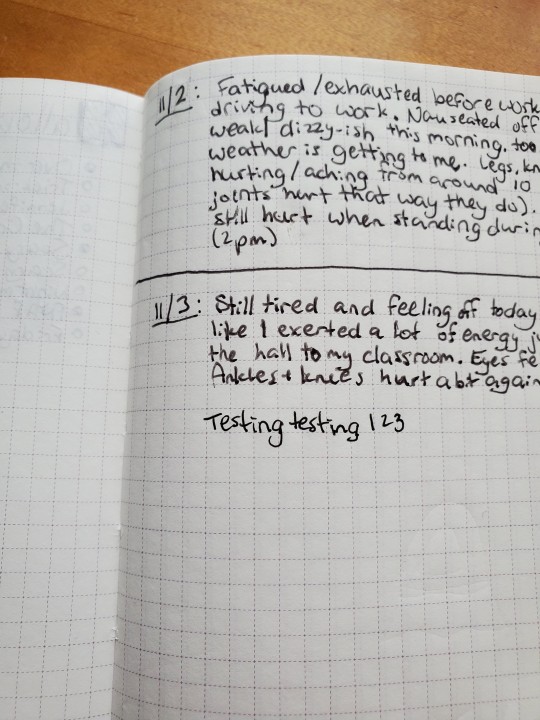 11/2: Fatigued/exhausted before work
driving to work. Nauseated off
weak/dizzy-ish this morning. too
weather is getting to me. Legs, kn
hurting/aching from around 10
joints hurt that way they do).
still hurt when standing durin
(2pm)
11/3: Still tired and feeling off today
like I exerted a lot of energy j
the hall to my classroom. Eyes fe
Ankles + knees hurt a bit again
Testing testing 123